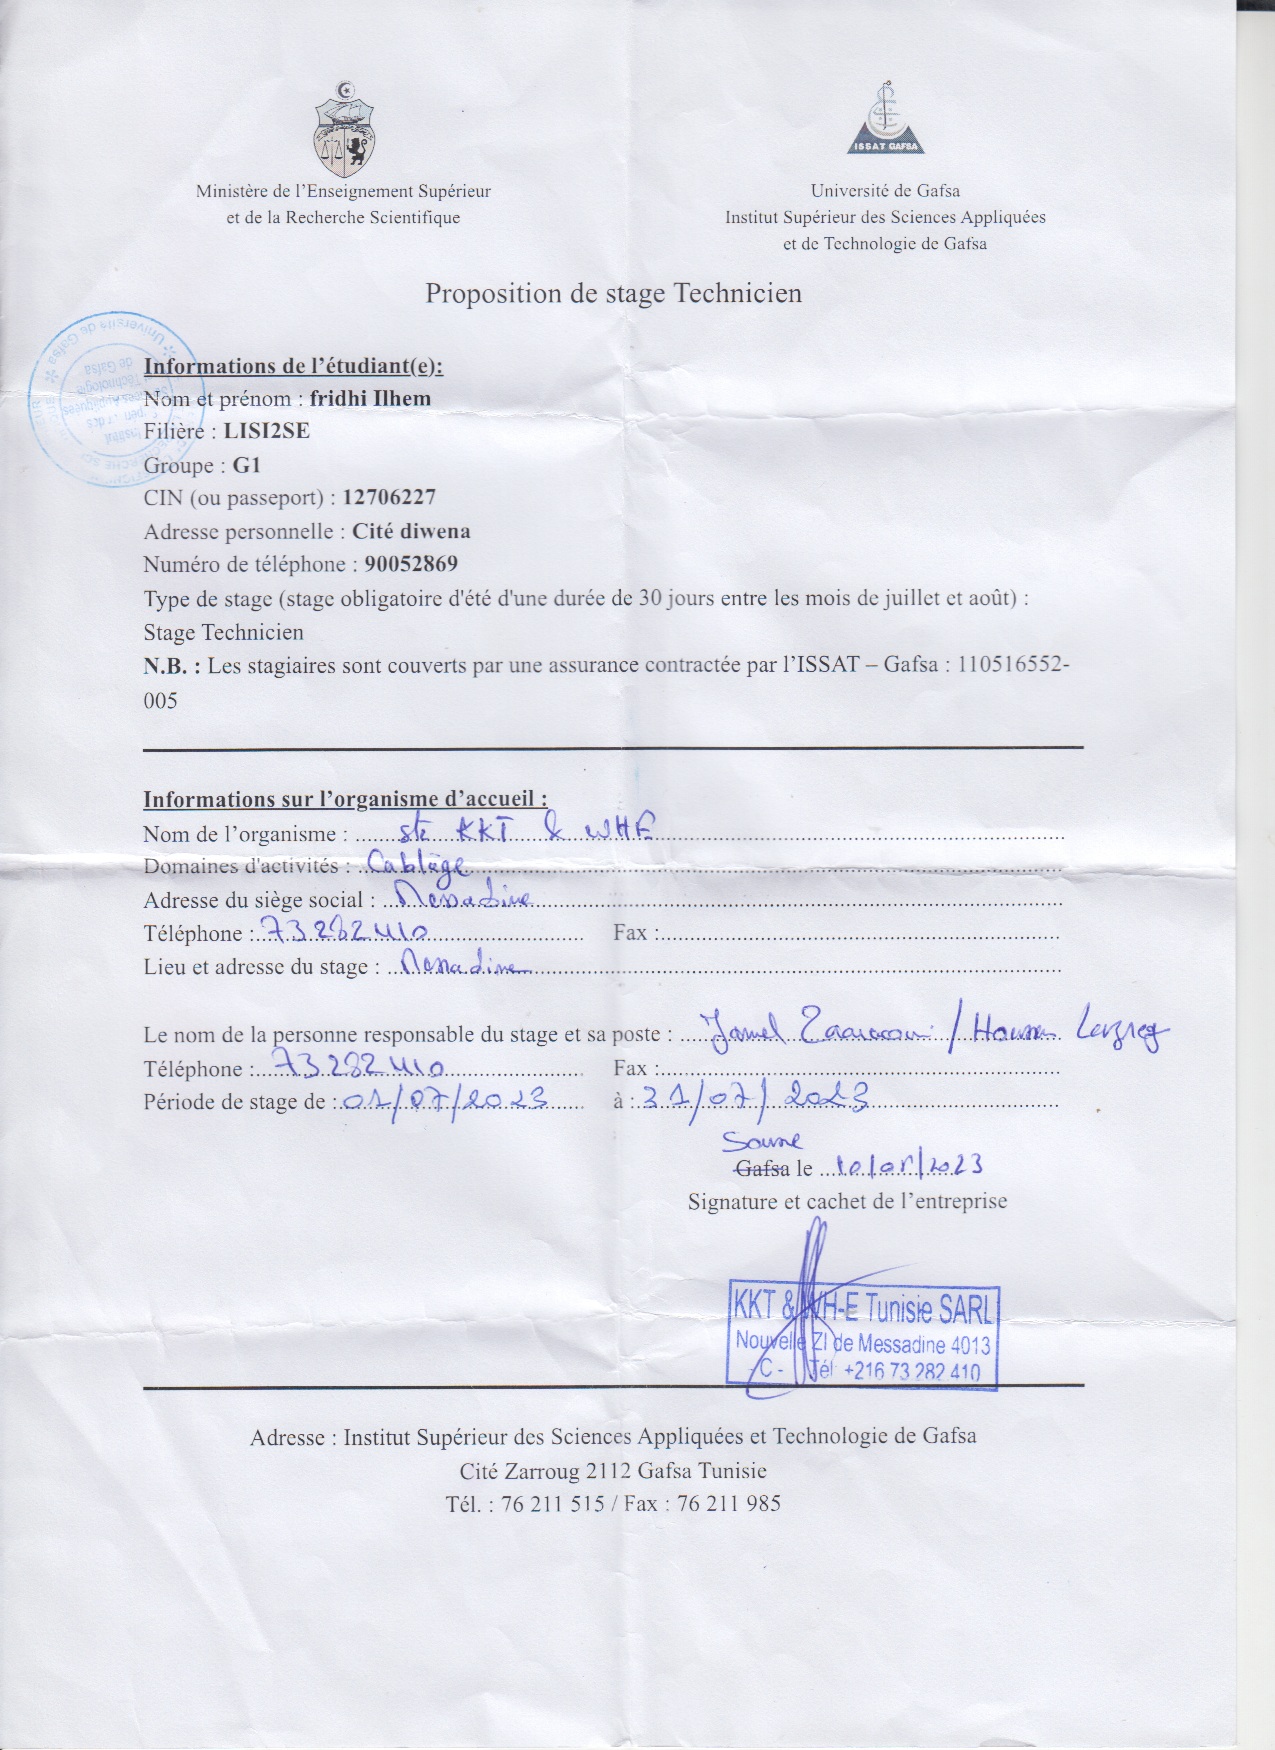 ISSAT GAFSA
Ministère de l'Enseignement Supérieur
et de la Recherche Scientifique
Université de Gafsa
Institut Supérieur des Sciences Appliquées
et de Technologie de Gafsa
Proposition de stage Technicien
Informations de l'étudiant(e):
Nom et prénom : fridhi Ilhem
Filière : LISI2SE
Groupe : G1
CIN (ou passeport) : 12706227
Adresse personnelle : Cité diwena
Numéro de téléphone : 90052869
Type de stage (stage obligatoire d'été d'une durée de 30 jours entre les mois de juillet et août) :
Stage Technicien
N.B. : Les stagiaires sont couverts par une assurance contractée par l'ISSAT – Gafsa : 110516552-
005
Informations sur l'organisme d'accueil :
Nom de l'organisme : sté KKT & WHE
Domaines d'activités : Cablage
Adresse du siège social : Messadine
Téléphone : 73 282 410 Fax :
Lieu et adresse du stage : Messadine
Le nom de la personne responsable du stage et sa poste : Jamel /
Téléphone : 73 282 410 Fax :
Période de stage de : 01/07/2023 à : 31/07/2023
Gafsa le 10/05/2023
Signature et cachet de l'entreprise
KKT & WH-E Tunisie SARL
Nouvelle ZI de Messadine 4013
- C - Tél: +216 73 282 410
Adresse : Institut Supérieur des Sciences Appliquées et Technologie de Gafsa
Cité Zarroug 2112 Gafsa Tunisie
Tél. : 76 211 515 / Fax : 76 211 985